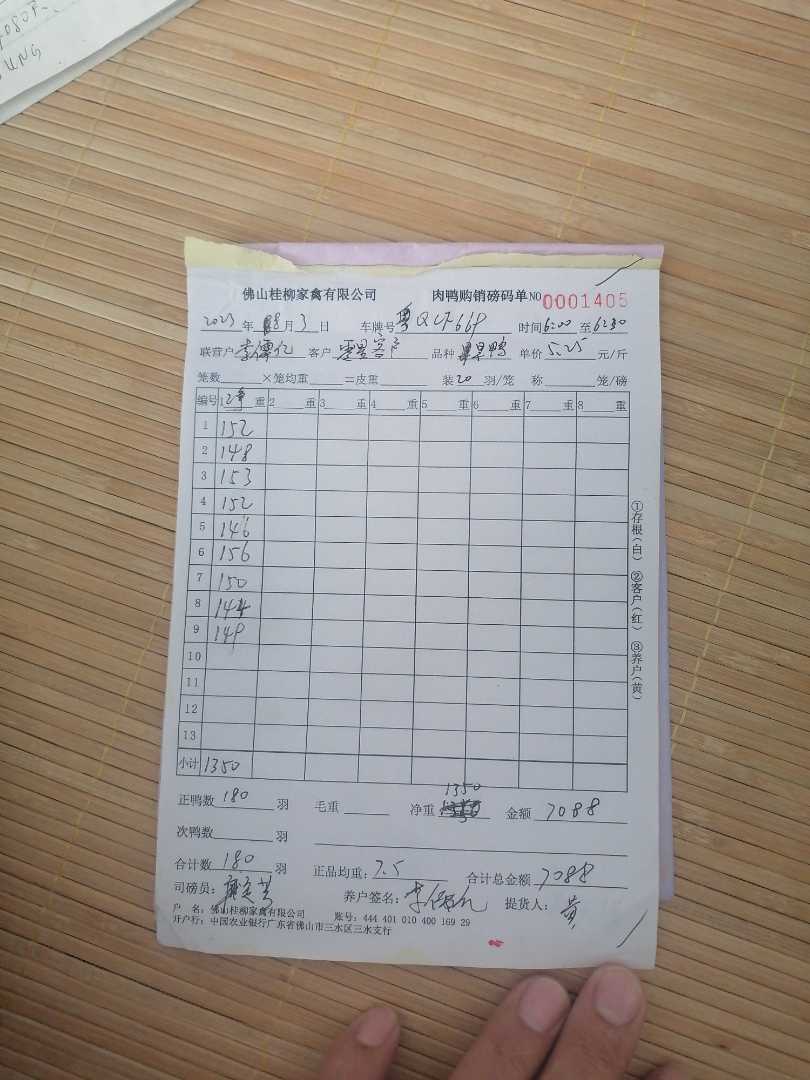 佛山桂柳家禽有限公司 肉鸭购销磅码单 NO 0001405
2023年 8月 3日 车牌号 粤Q 669 时间 6:00 至 6:30
联营户 李伟亿 客户 零星客户 品种 鸭 单价 5.25 元/斤
笼数 ×笼均重 =皮重 装 20 羽/笼 称 笼/磅
编号 1 净重 2 重 3 重 4 重 5 重 6 重 7 重 8 重
1 152
2 148
3 153
4 152
5 146
6 156
7 150
8 144
9 149
10
11
12
13
小计 1350
正鸭数 180 羽 毛重 净重 1350 金额 7088
次鸭数 羽
合计数 180 羽 正品均重: 7.5 合计总金额 7088
司磅员: 养户签名: 李 亿 提货人: 黄
户 名: 佛山桂柳家禽有限公司 账号: 444 401 010 400 169 29
开户行: 中国农业银行广东省佛山市三水区三水支行
①存根(白) ②客户(红) ③养户(黄)